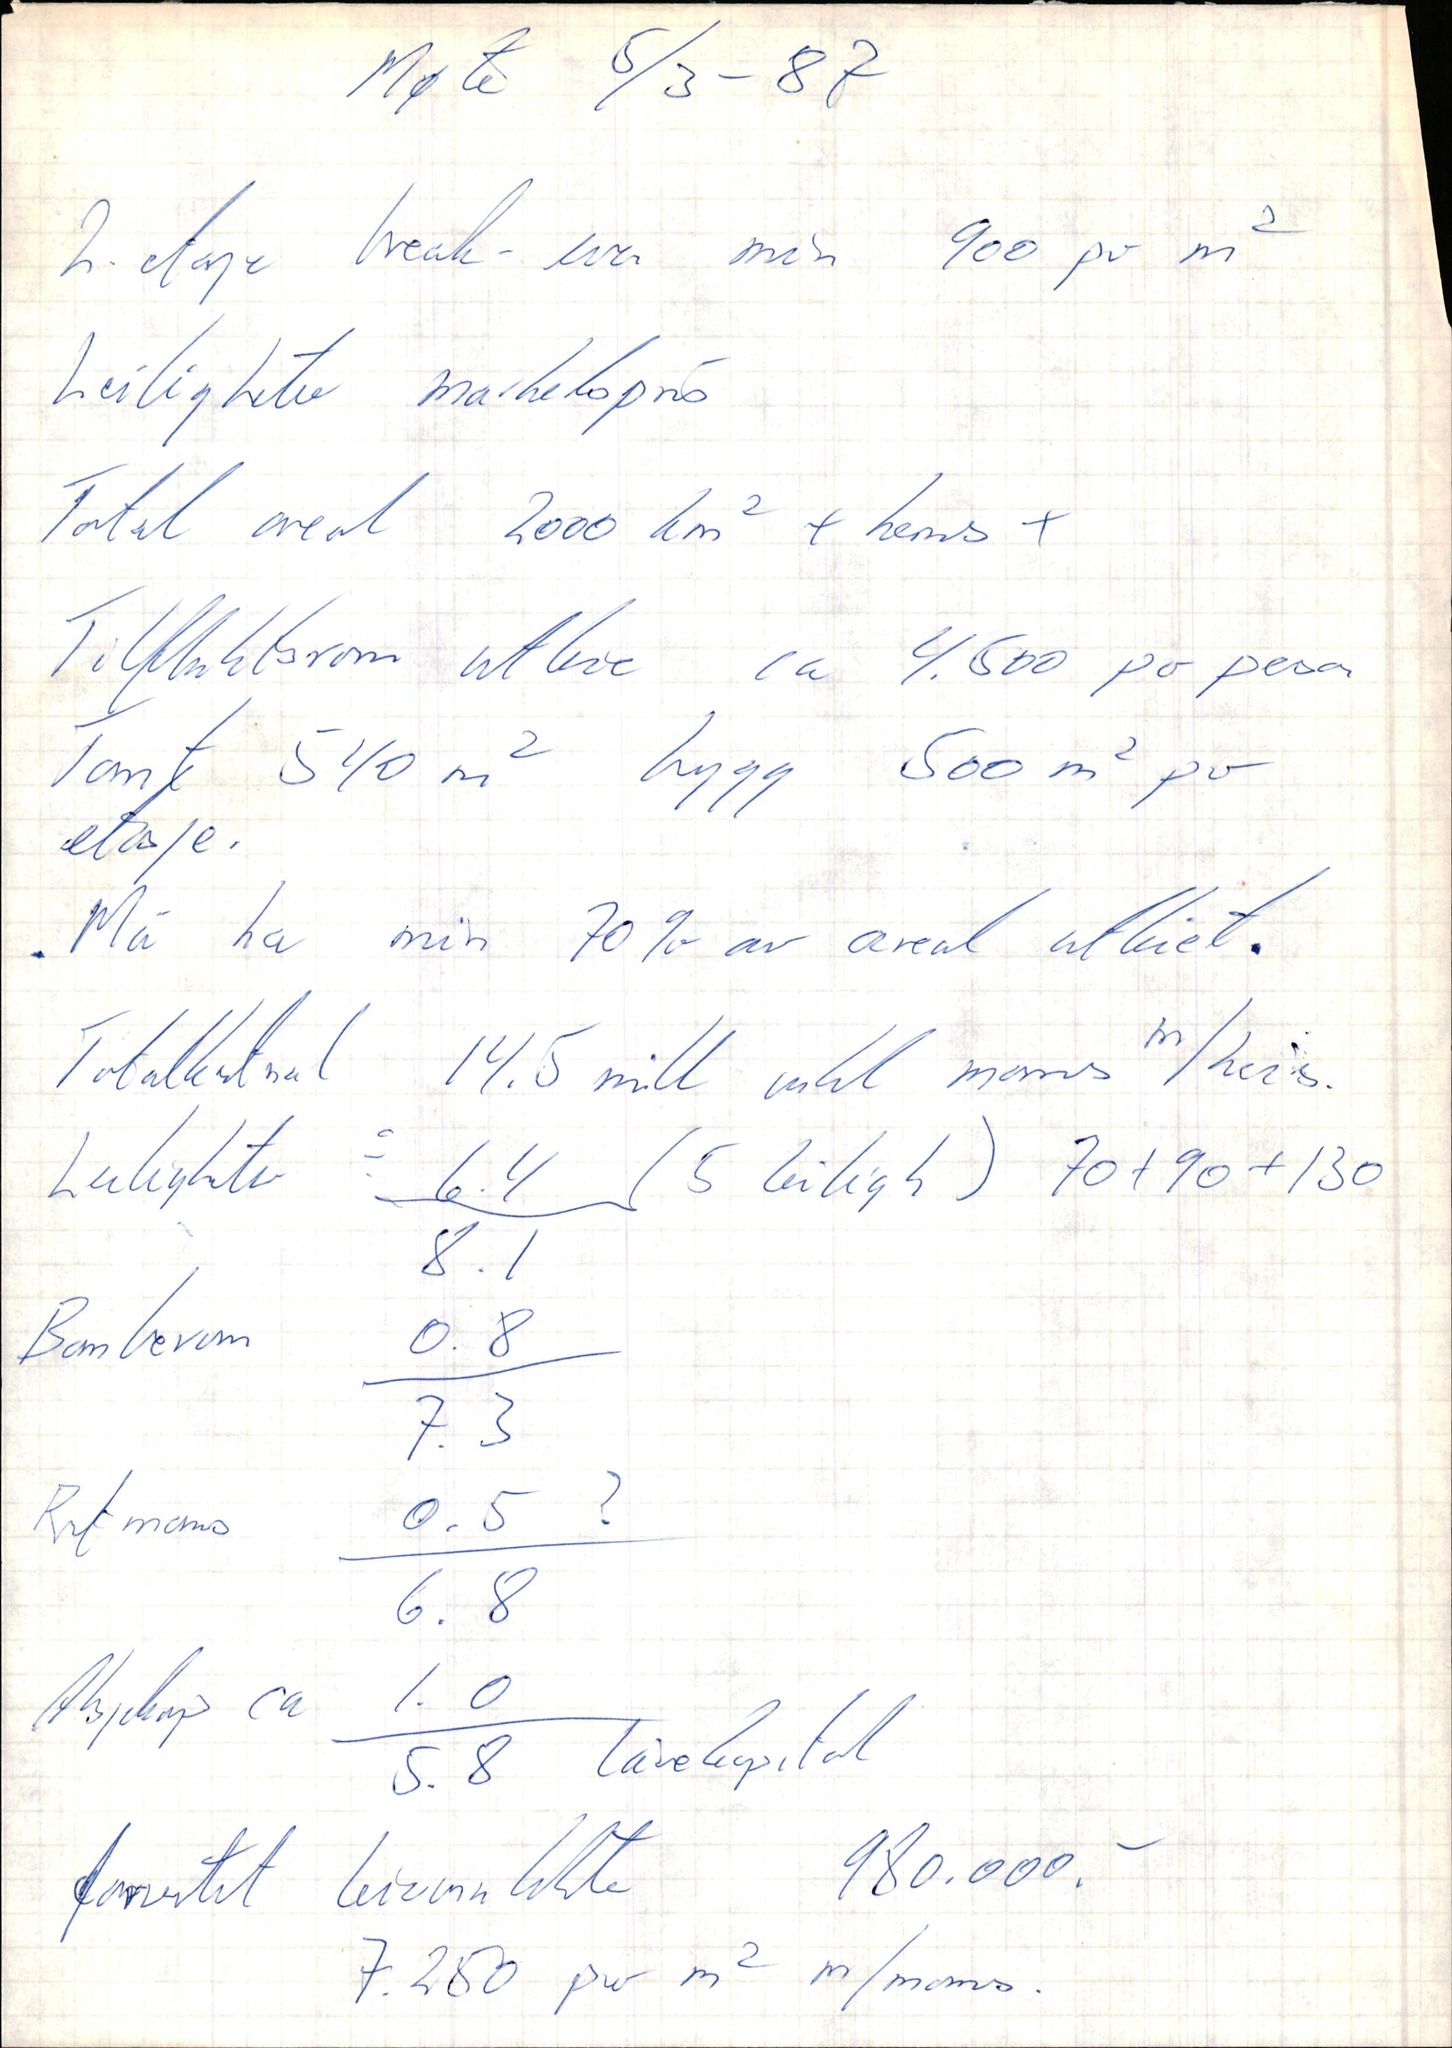 Møte 5/3-87
2. etasje break-even min 900 pr m²
Leiligheter markedspris
Total areal 2000 km² + hems +
Tilfluktsrom utleie ca 4.500 pr person
Tomt 540 m² bygg 500 m² pr
etasje.
. Må ha min 70% av areal utleiet.
Totalkostnad 14.5 mill inkl moms m/heis.
Leiligheter ÷ 6.4 (5 leiligh) 70+90+130
8.1
Bomberom 0.8
7.3
Ref moms 0.5 ?
6.8
Aksjekap ca 1.0
5.8 Lånekapital
forventet leieinntekter 980.000.-
7.250 pr m² m/moms.